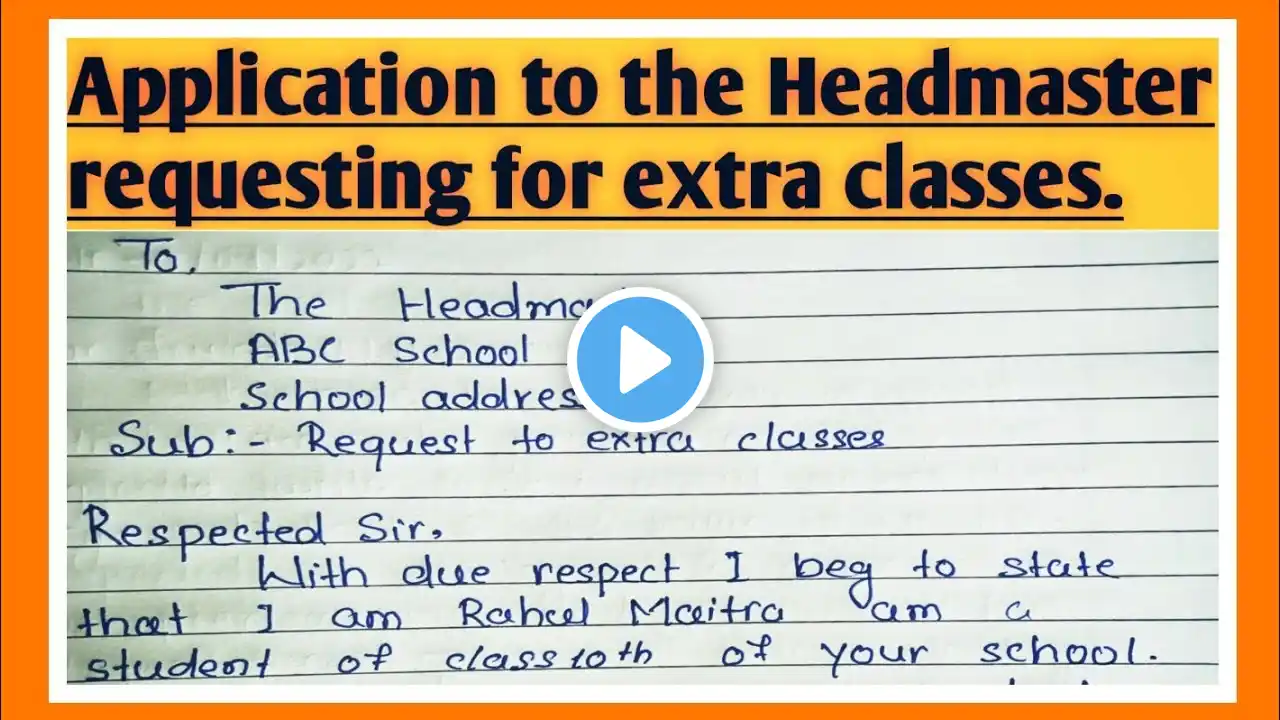 Application to the Headmaster
requesting for extra classes.
To,
The
ABC School
School
Sub:- Request to extra classes
Respected Sir,
With due respect I beg to state
that I am Rahul Maitra am a
student of class 10th of your school.